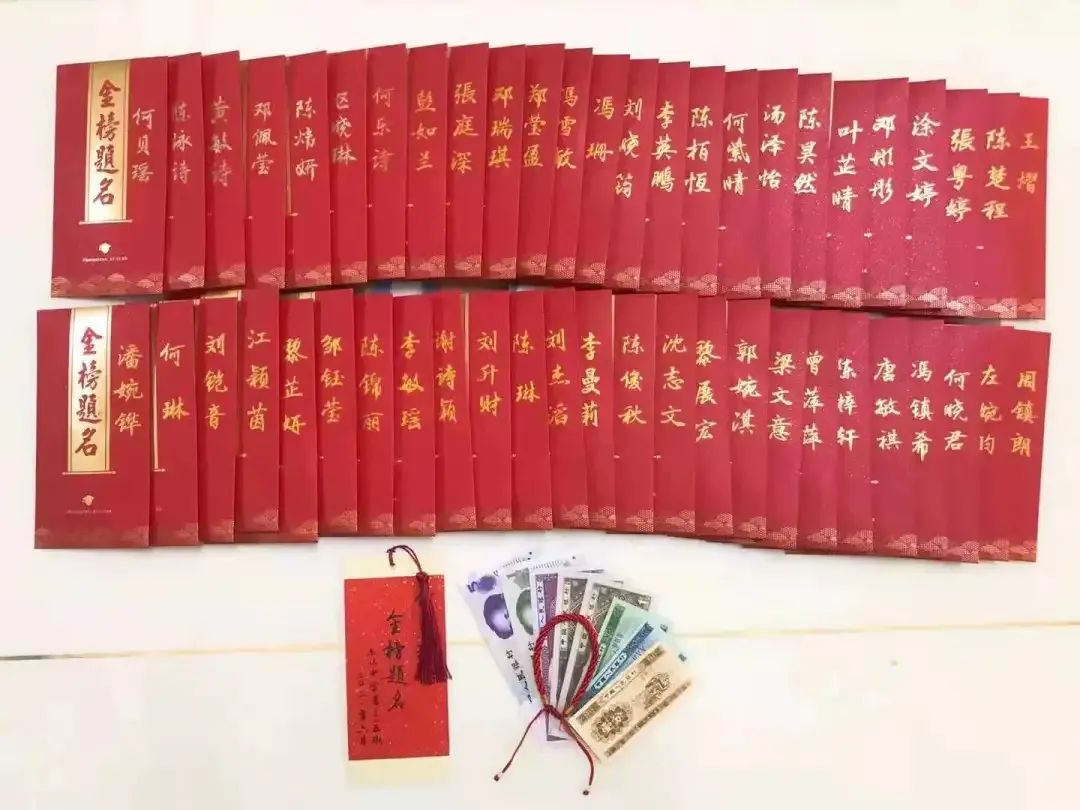 金榜題名
何贝瑶
陈咏诗
黄敏诗
邓佩莹
陈炜妍
区晓琳
何乐诗
彭如兰
張庭深
邓瑞琪
郑莹盈
冯雪敏
馮珊
刘晓筠
李英鹏
陈栢恒
何紫晴
汤泽怡
陈昊然
叶芷晴
邓彤彤
涂文婷
張粤婷
陈楚程
王熠
金榜題名
潘婉铧
何琳
刘铠音
江颖茵
黎芷妍
邹钰莹
陈锦丽
李敏瑶
谢诗颖
刘升财
陈琳
刘杰滔
李曼莉
陈俊秋
沈志文
黎展宏
郭婉淇
梁文意
曾萍萍
陈梓轩
唐敏祺
冯镇希
何晓君
左婉均
周镇朗
金榜題名
中國人民銀行